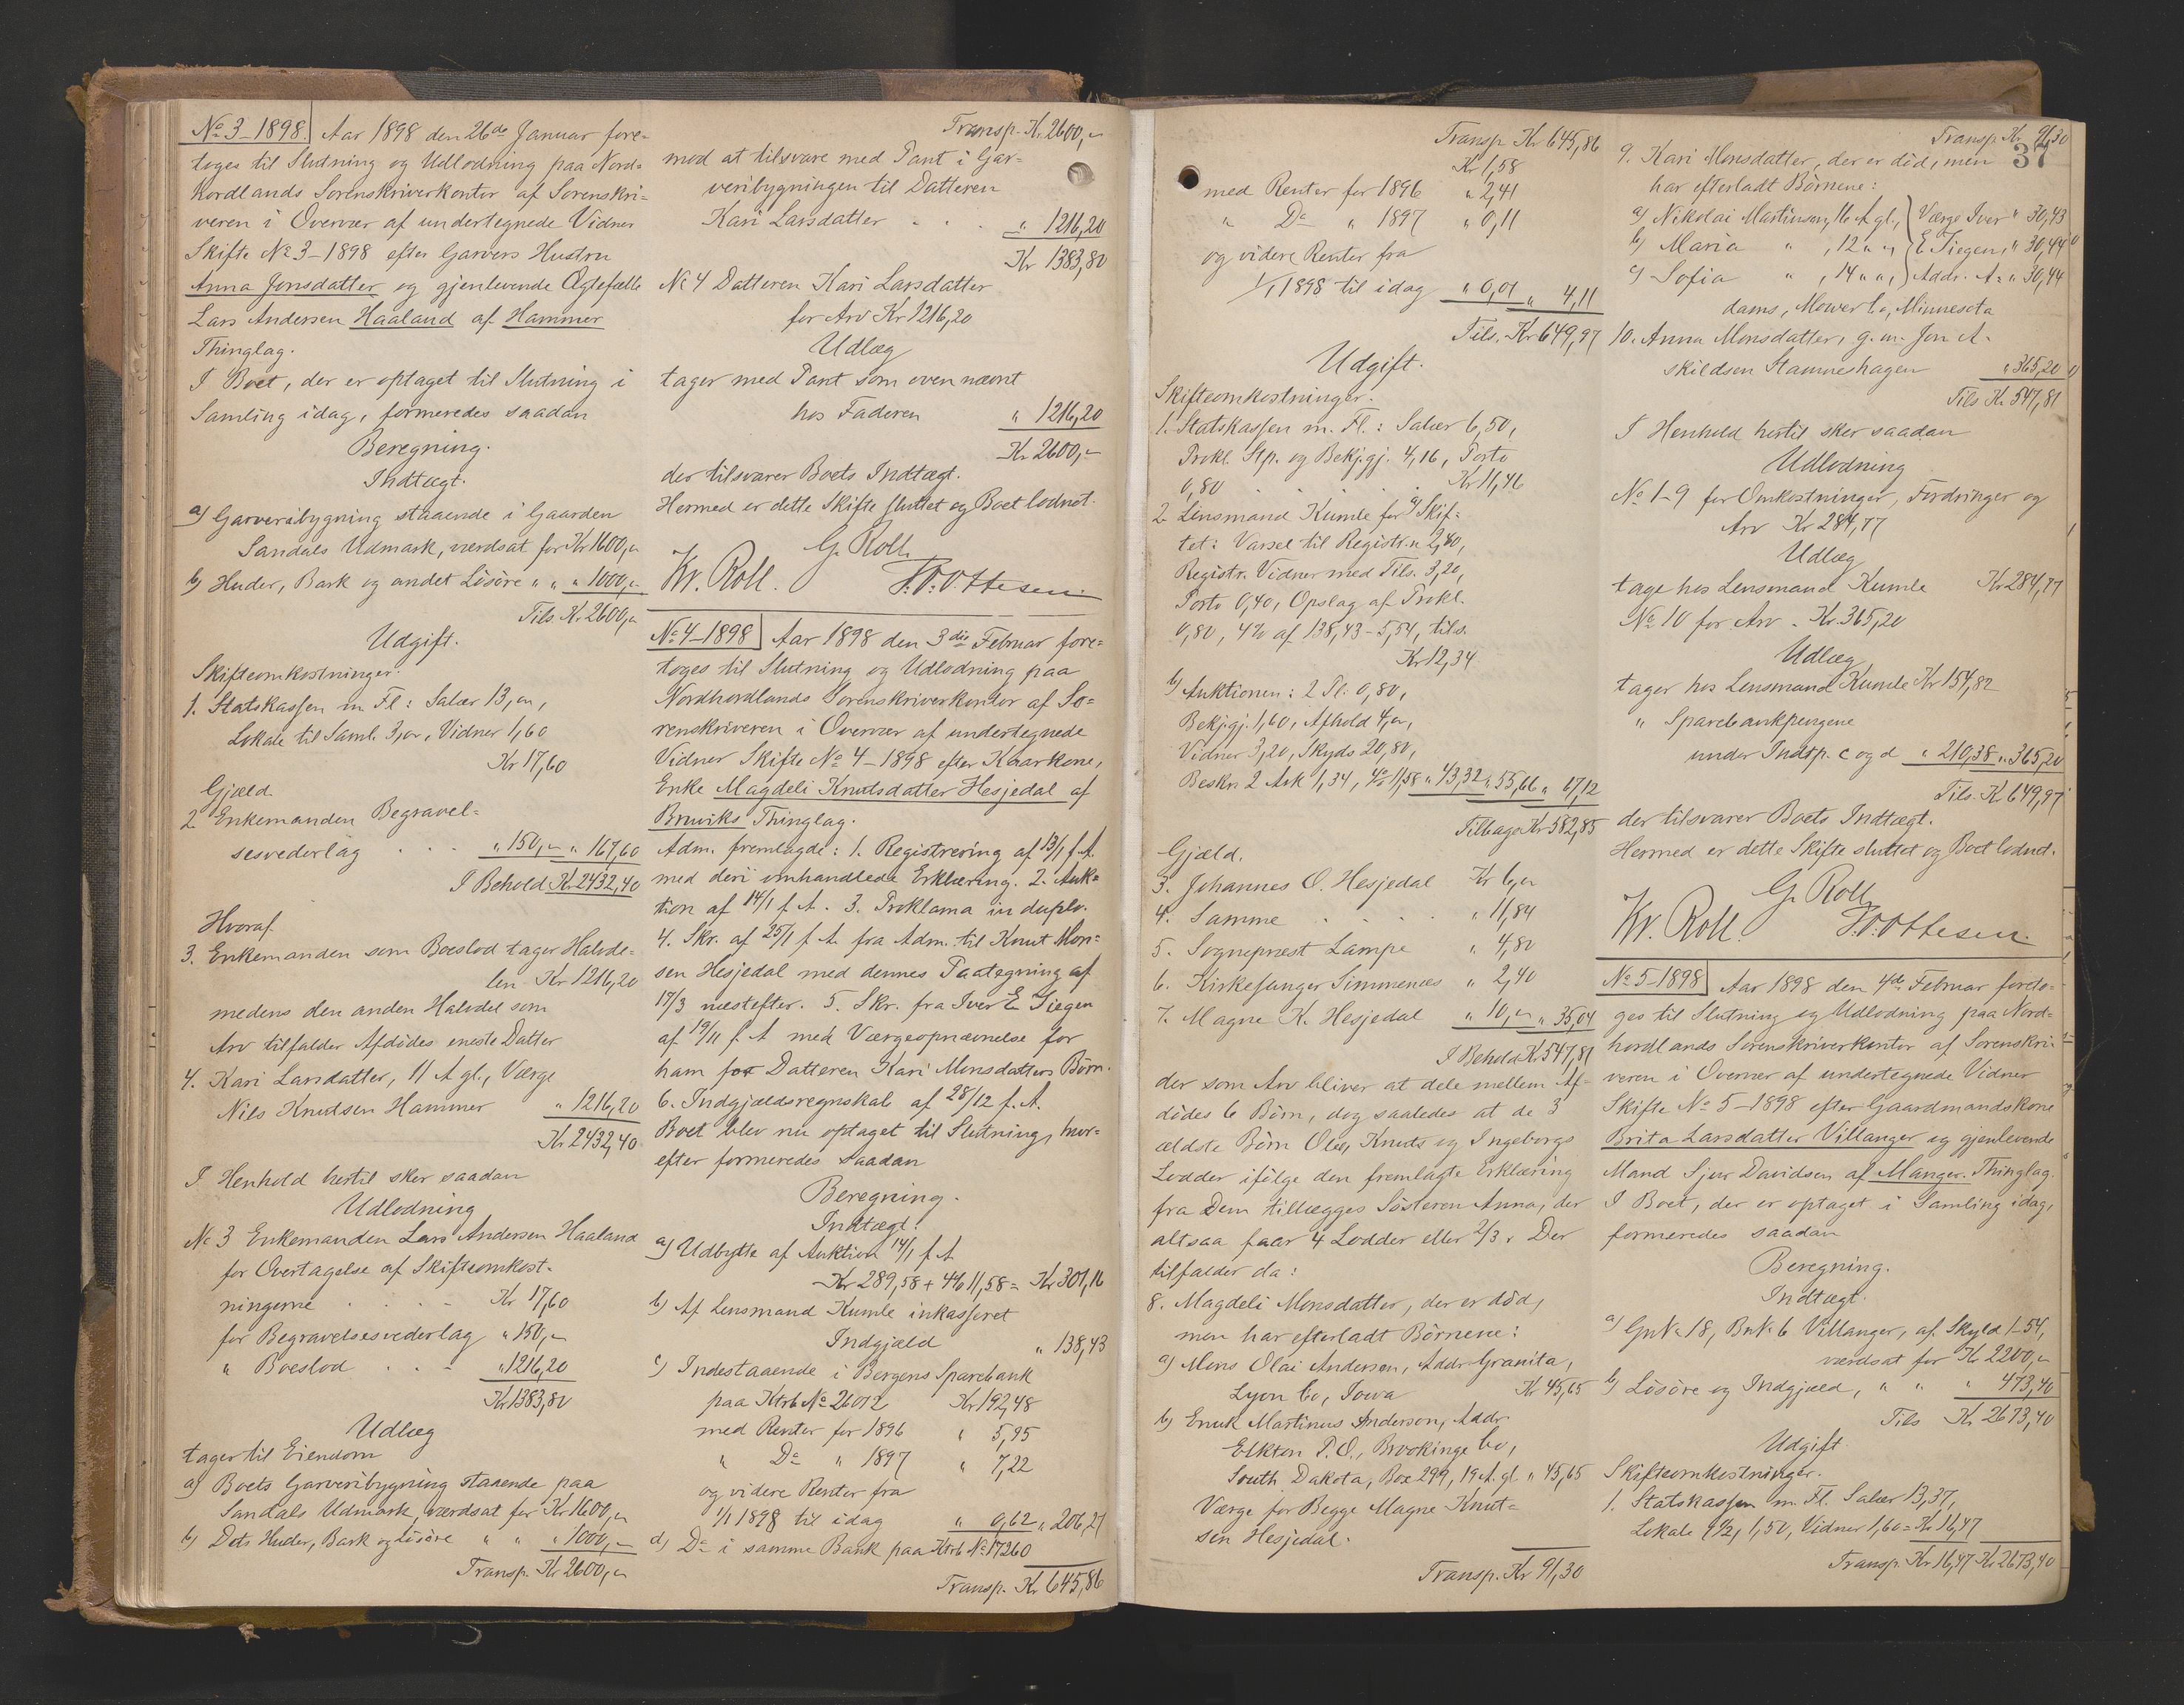 No 3-1898. Aar 1898 den 26de Januar fore-
toges til Slutning og Udlodning paa Nord-
hordlands Sorenskriverkontor af Sorenskri-
veren i Overvær af undertegnede Vidner
Skifte No 3-1898 efter Garvers Hustru
Anna Jonsdatter og gjenlevende Ægtefælle
Lars Andersen Haaland af Hammer
Thinglag.
I Boet, der er optaget til Slutning i
Samling idag, formeredes saadan
Beregning.
Indtægt.
a) Garveribygning staaende i Gaarden
Sandals Udmark, værdsat for Kr 1600,"
b) Huder, Bark og andet Lösöre " " " 1000,"
Tils Kr. 2600,"
Udgift.
Skifteomkostninger.
1. Statskassen m Fl: Salær 13,",
Lokale til Saml. 3,", Vidner 1,60
Kr 17,60
Gjæld.
2 Enkemanden Begravel-
sesvederlag . . . " 150,- " 167,60
I Behold Kr. 2432,40
Hvoraf
3. Enkemanden som Boeslod tager Halvde-
len Kr 1216,20
medens den anden Halvdel som
Arv tilfalder Afdödes eneste Datter
4. Kari Larsdatter, 11 A gl., Værge
Nils Knudsen Hammer " 1216,20
Kr 2432,40
I Henhold hertil sker saadan
Udlodning
No 3 Enkemanden Lars Andersen Haaland
for Overtagelse af Skifteomkost-
ningerne . . . . Kr 17,60
for Begravelsesvederlag " 150,-
" Boeslod . . - " 1216,20
Kr 1383,80
Udlæg
tager til Eiendom
a) Boets Garveribygning staaende paa
Sandals Udmark, værdsat for Kr 1600,"
b) Dets Huder, Bark og Lösöre " " " 1000,-
Transp. Kr 2600,"
Transp. Kr. 2600,-
mod at tilsvare med Pant i Gar-
veribygningen til Datteren
Kari Larsdatter . . . " 1216,20
Kr 1383,80
No 4 Datteren Kari Larsdatter
for Arv Kr 1216,20
Udlæg
tager med Pant som oven nævnt
hos Faderen " 1216,20
Kr 2600,-
der tilsvarer Boets Indtægt.
Hermed er dette Skifte sluttet og Boet lodnet.
G. Roll
Kr. Roll. P. O. Ottesen.
No 4-1898 Aar 1898 den 3die Februar fore-
toges til Slutning og Udlodning paa
Nordhordlands Sorenskriverkontor af So-
renskriveren i Overvær af undertegnede
Vidner Skifte No 4-1898 efter Kaarkone,
Enke Magdeli Knutsdatter Hesjedal af
Bruviks Thinglag.
Adm. fremlagde: 1. Registrering af 13/1 f. A.
med deri omhandlede Erklæring. 2. Auk-
tion af 14/1 f. A. 3. Proklama in duplo.
4. Skr. af 25/1 f. A. fra Adm. til Knut Mon-
sen Hesjedal med dennes Paategning af
17/3 næstefter. 5. Skr. fra Iver E. Tiegen
af 19/11 f. A med Værgeopnævnelse for
ham for Datteren Kari Monsdatters Börn.
6. Indgjældsregnskab af 28/12 f. A.
Boet blev nu optaget til Slutning, hvor-
efter formeredes saadan
Beregning.
Indtægt.
a) Udbytte af Auktion 14/1 f. A
Kr 289,58 + 4% 11,58 = Kr 301,16
b) Af Lensmand Kumle inkasseret
Indgjæld " 138,43
c) Indestaaende i Bergens Sparebank
paa Ktrb No 26012 Kr 192,48
med Renter for 1896 " 5,95
" Do " 1897 " 7,22
og videre Renter fra
1/1 1898 til idag " 0,62 " 206,27
d) Do i samme Bank paa Ktrb No 17260
Transp. Kr 645,86
Transp Kr 645,86
Kr 1,58
med Renter for 1896 " 2,41
" Do " 1897 " 0,11
og videre Renter fra
1/1 1898 til idag " 0,01 " 4,11
Tils. Kr 649,97
Udgift.
Skifteomkostninger.
1. Statskassen m. Fl.: Salær 6,50,
Prokl. Stp. og Bekjgj. 4,16, Porto
0,80 . . . . . Kr 11,46
2 Linsmand Kumle for a) Skif-
tet: Varsel til Registr.n 2,40,
Registr. Vidner med Tils. 3,20,
Porto 0,40, Opslag af Prokl.
0,80, 4% af 138,43 - 5,54, tils.
Kr 12,34
b) Auktionen: 2 Pl. 0,80,
Bekjgj. 1,60, Afhold 4,",
Vidner 3,20, Skyds 20,80,
Beskr. 2 Ark 1,34, 4% 11,58 " 43,32 " 55,66 " 67,12
Tilbage Kr 582,85
Gjæld.
3. Johannes O. Hesjedal Kr 6,"
4. Samme . . . . " 11,84
5. Sogneprest Lampe " 4,80
6. Kirkesanger Simmenæs " 2,40
7. Magne K. Hesjedal " 10,- " 35,04
I Behold Kr. 547,81
der som Arv bliver at dele mellem Af-
dödes 6 Börn, dog saaledes at de 3
ældste Börn Oles, Knuts og Ingeborgs
Lodder ifölge den fremlagte Erklæring
fra Dem tillægges Sösteren Anna, der
altsaa faar 4 Lodder eller 2/3. Der
tilfalder da:
8. Magdeli Monsdatter, der er död,
men har efterladt Börnene:
a) Mons Olai Anderson, Addr. Granita,
Lyon Co, Iowa Kr 45,65
b) Enuk Martinus Anderson, Addr
Elkton P.O., Brookinge Co,
South Dakota, Box 299, 19 A. gl. " 45,65
Værge for Begge Magne Knut-
sen Hesjedal.
Transp. Kr 91,30
37
Transp. Kr 91,30
9. Kari Monsdatter, der er död, men
har efterladt Börnene:
a) Nikolai Martinson, 16 A gl., Værge Iver " 30,43
b) Maria " , 12 " ", E. Tiegen, " 30,44
c) Sofia " , 14 " ", Addr. A- " 30,44
dams, Mower Co, Minnesota
10. Anna Monsdatter, g. m. Jon A-
skildsen Stamneshagen " 365,20
Tils Kr 547,81
I Henhold hertil sker saadan
Udlodning
No 1-9 for Omkostninger, Fordringer og
Arv Kr 284,77
Udlæg
tage hos Lensmand Kumle Kr 284,77
No 10 for Arv - Kr. 365,20
Udlæg
tager hos Lensmand Kumle Kr 154,82
" Sparebankpengene
under Indtp. c og d " 210,38 " 365,20
Tils. Kr 649,97
der tilsvarer Boets Indtægt.
Hermed er dette Skifte sluttet og Boet lodnet.
G. Roll
Kr. Roll. P. O. Ottesen.
No 5-1898 Aar 1898 den 4de Februar foreto-
ges til Slutning og Udlodning paa Nord-
hordlands Sorenskriverkontor af Sorenskri-
veren i Overvær af undertegnede Vidner
Skifte No 5-1898 efter Gaardmandskone
Brita Larsdatter Villanger og gjenlevende
Mand Sjur Davidsen af Manger Thinglag.
I Boet, der er optaget i Samling idag,
formeredes saadan
Beregning.
Indtægt.
a) GnNo 18, BnNo 6 Villanger, af Skyld 1-54,
værdsat for Kr 2200,"
b) Lösöre og Indgjæld, " " " 473,40
Tils Kr. 2673,40
Udgift
Skifteomkostninger.
1. Statskassen m. Fl. Salær 13,37,
Lokale 1,50, Vidner 1,60 = Kr 16,47
Transp. Kr 16,47 Kr 2673,40